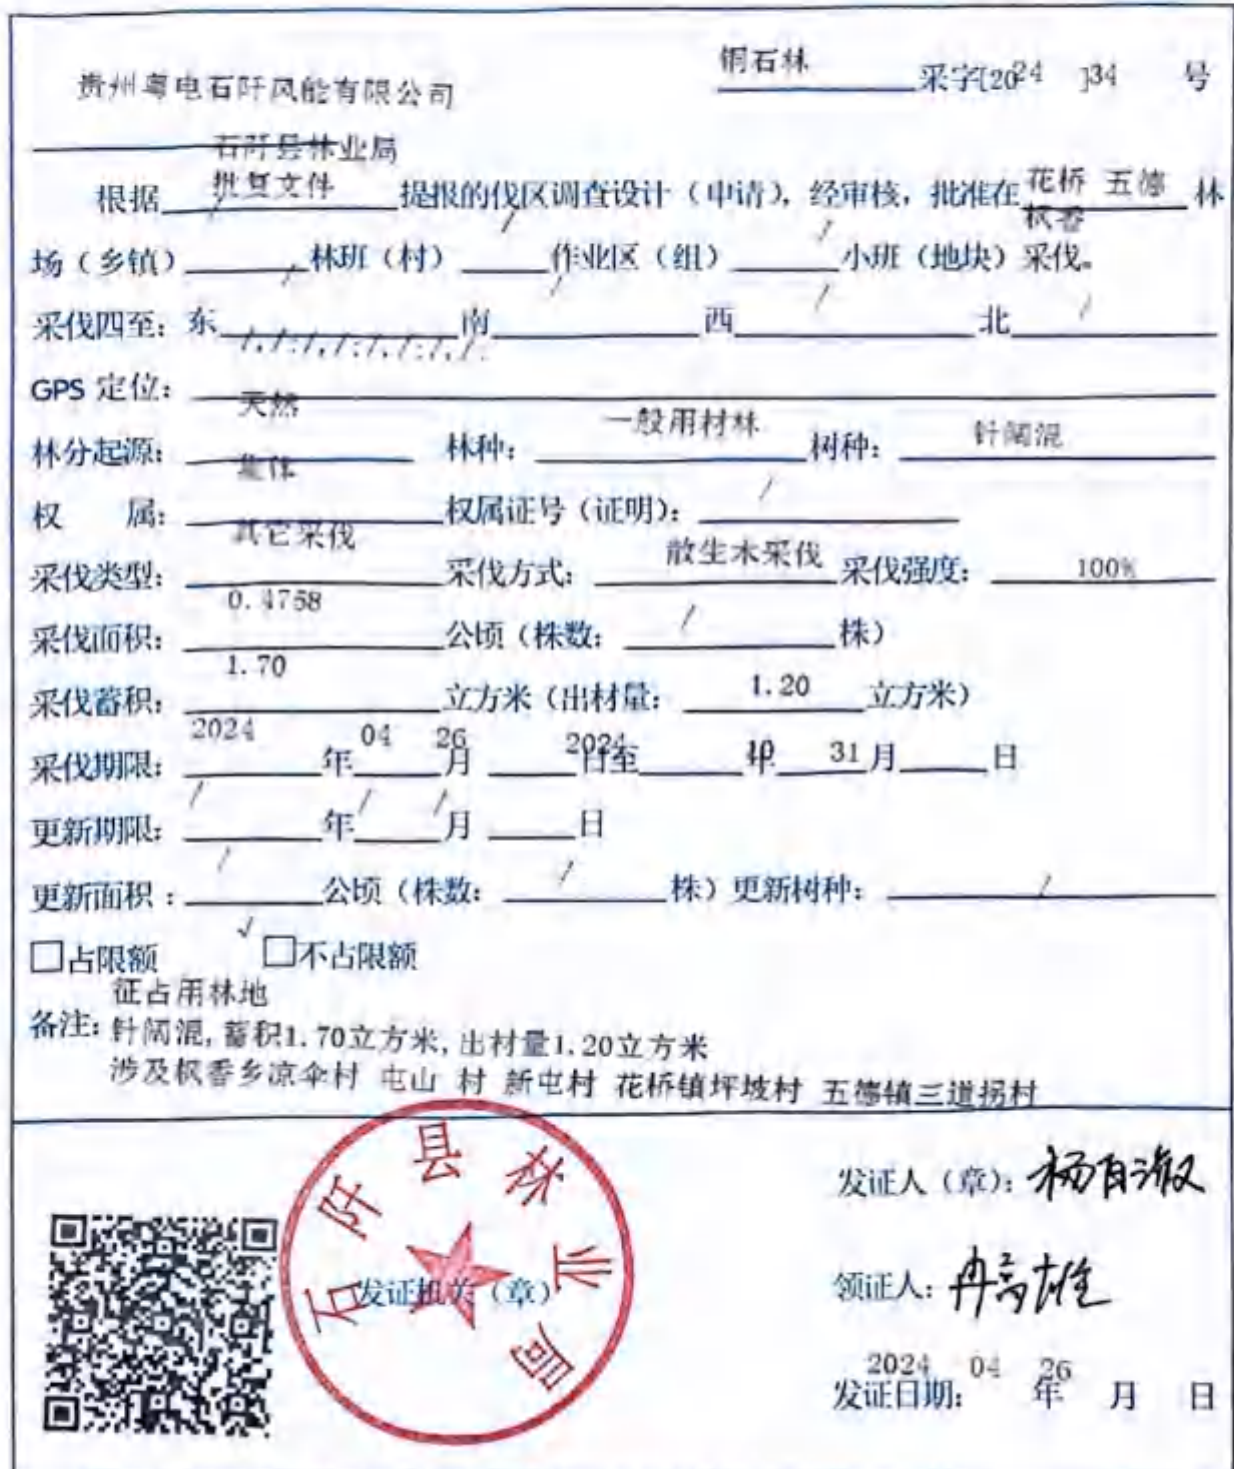 铜石林 采字[2024]34 号
贵州粤电石阡风能有限公司
石阡县林业局
根据 批复文件 提报的伐区调查设计（申请），经审核，批准在 花桥 五德 枫香 林
场（乡镇） / 林班（村） / 作业区（组） / 小班（地块）采伐。
采伐四至：东 / 南 / 西 / 北 /
GPS 定位： /./:/./:/./:/./:
林分起源： 天然 林种： 一般用材林 树种： 针阔混
权 属： 集体 权属证号（证明）： /
采伐类型： 其它采伐 采伐方式： 散生木采伐 采伐强度： 100%
采伐面积： 0.4758 公顷（株数： / 株）
采伐蓄积： 1.70 立方米（出材量： 1.20 立方米）
采伐期限： 2024 年 04 月 26 日至 2024 年 10 月 31 日
更新期限： / 年 / 月 / 日
更新面积： / 公顷（株数： / 株）更新树种： /
□占限额 √□不占限额
征占用林地
备注：针阔混,蓄积1.70立方米,出材量1.20立方米
涉及枫香乡凉伞村 屯山 村 新屯村 花桥镇坪坡村 五德镇三道拐村
石阡县林业局
发证机关（章）
发证人（章）：杨
领证人：冉高雄
发证日期： 2024 年 04 月 26 日